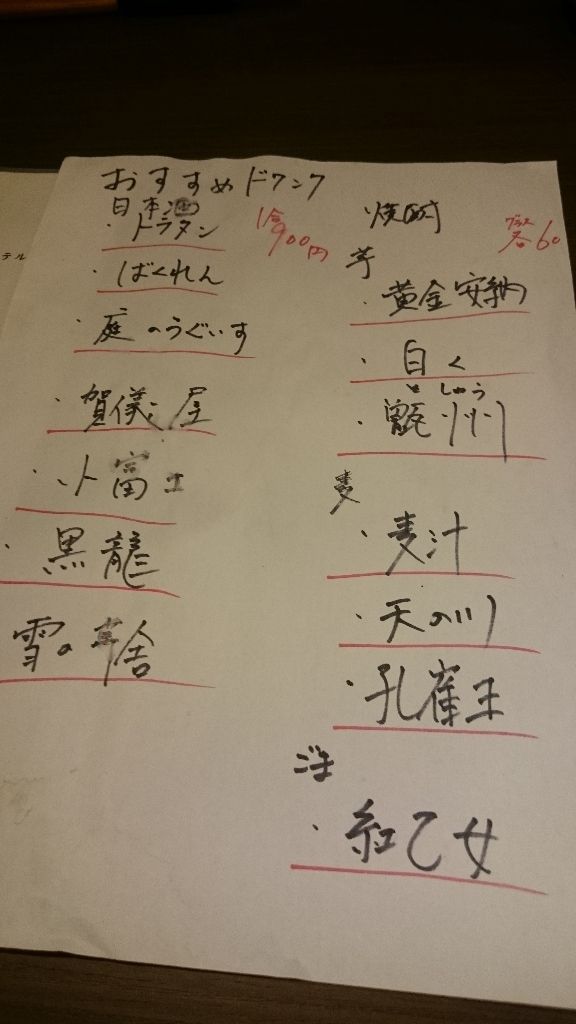 おすすめドリンク
日本酒
1合
900円
・トラタン
・ばくれん
・庭のうぐいす
・賀儀屋
・小富士
・黒龍
雪の茅舎
焼酎
グラス
各60
芋
・黄金安納
・白く
としゅう
・甑州
麦
・麦汁
・天の川
・孔雀王
ごま
・紅乙女
テル